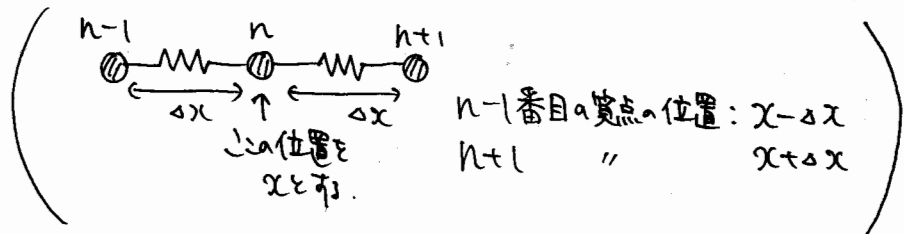 n-1 n n+1
Δx Δx
ここの位置を
xとする.
n-1番目の質点の位置: x-Δx
n+1 〃 x+Δx